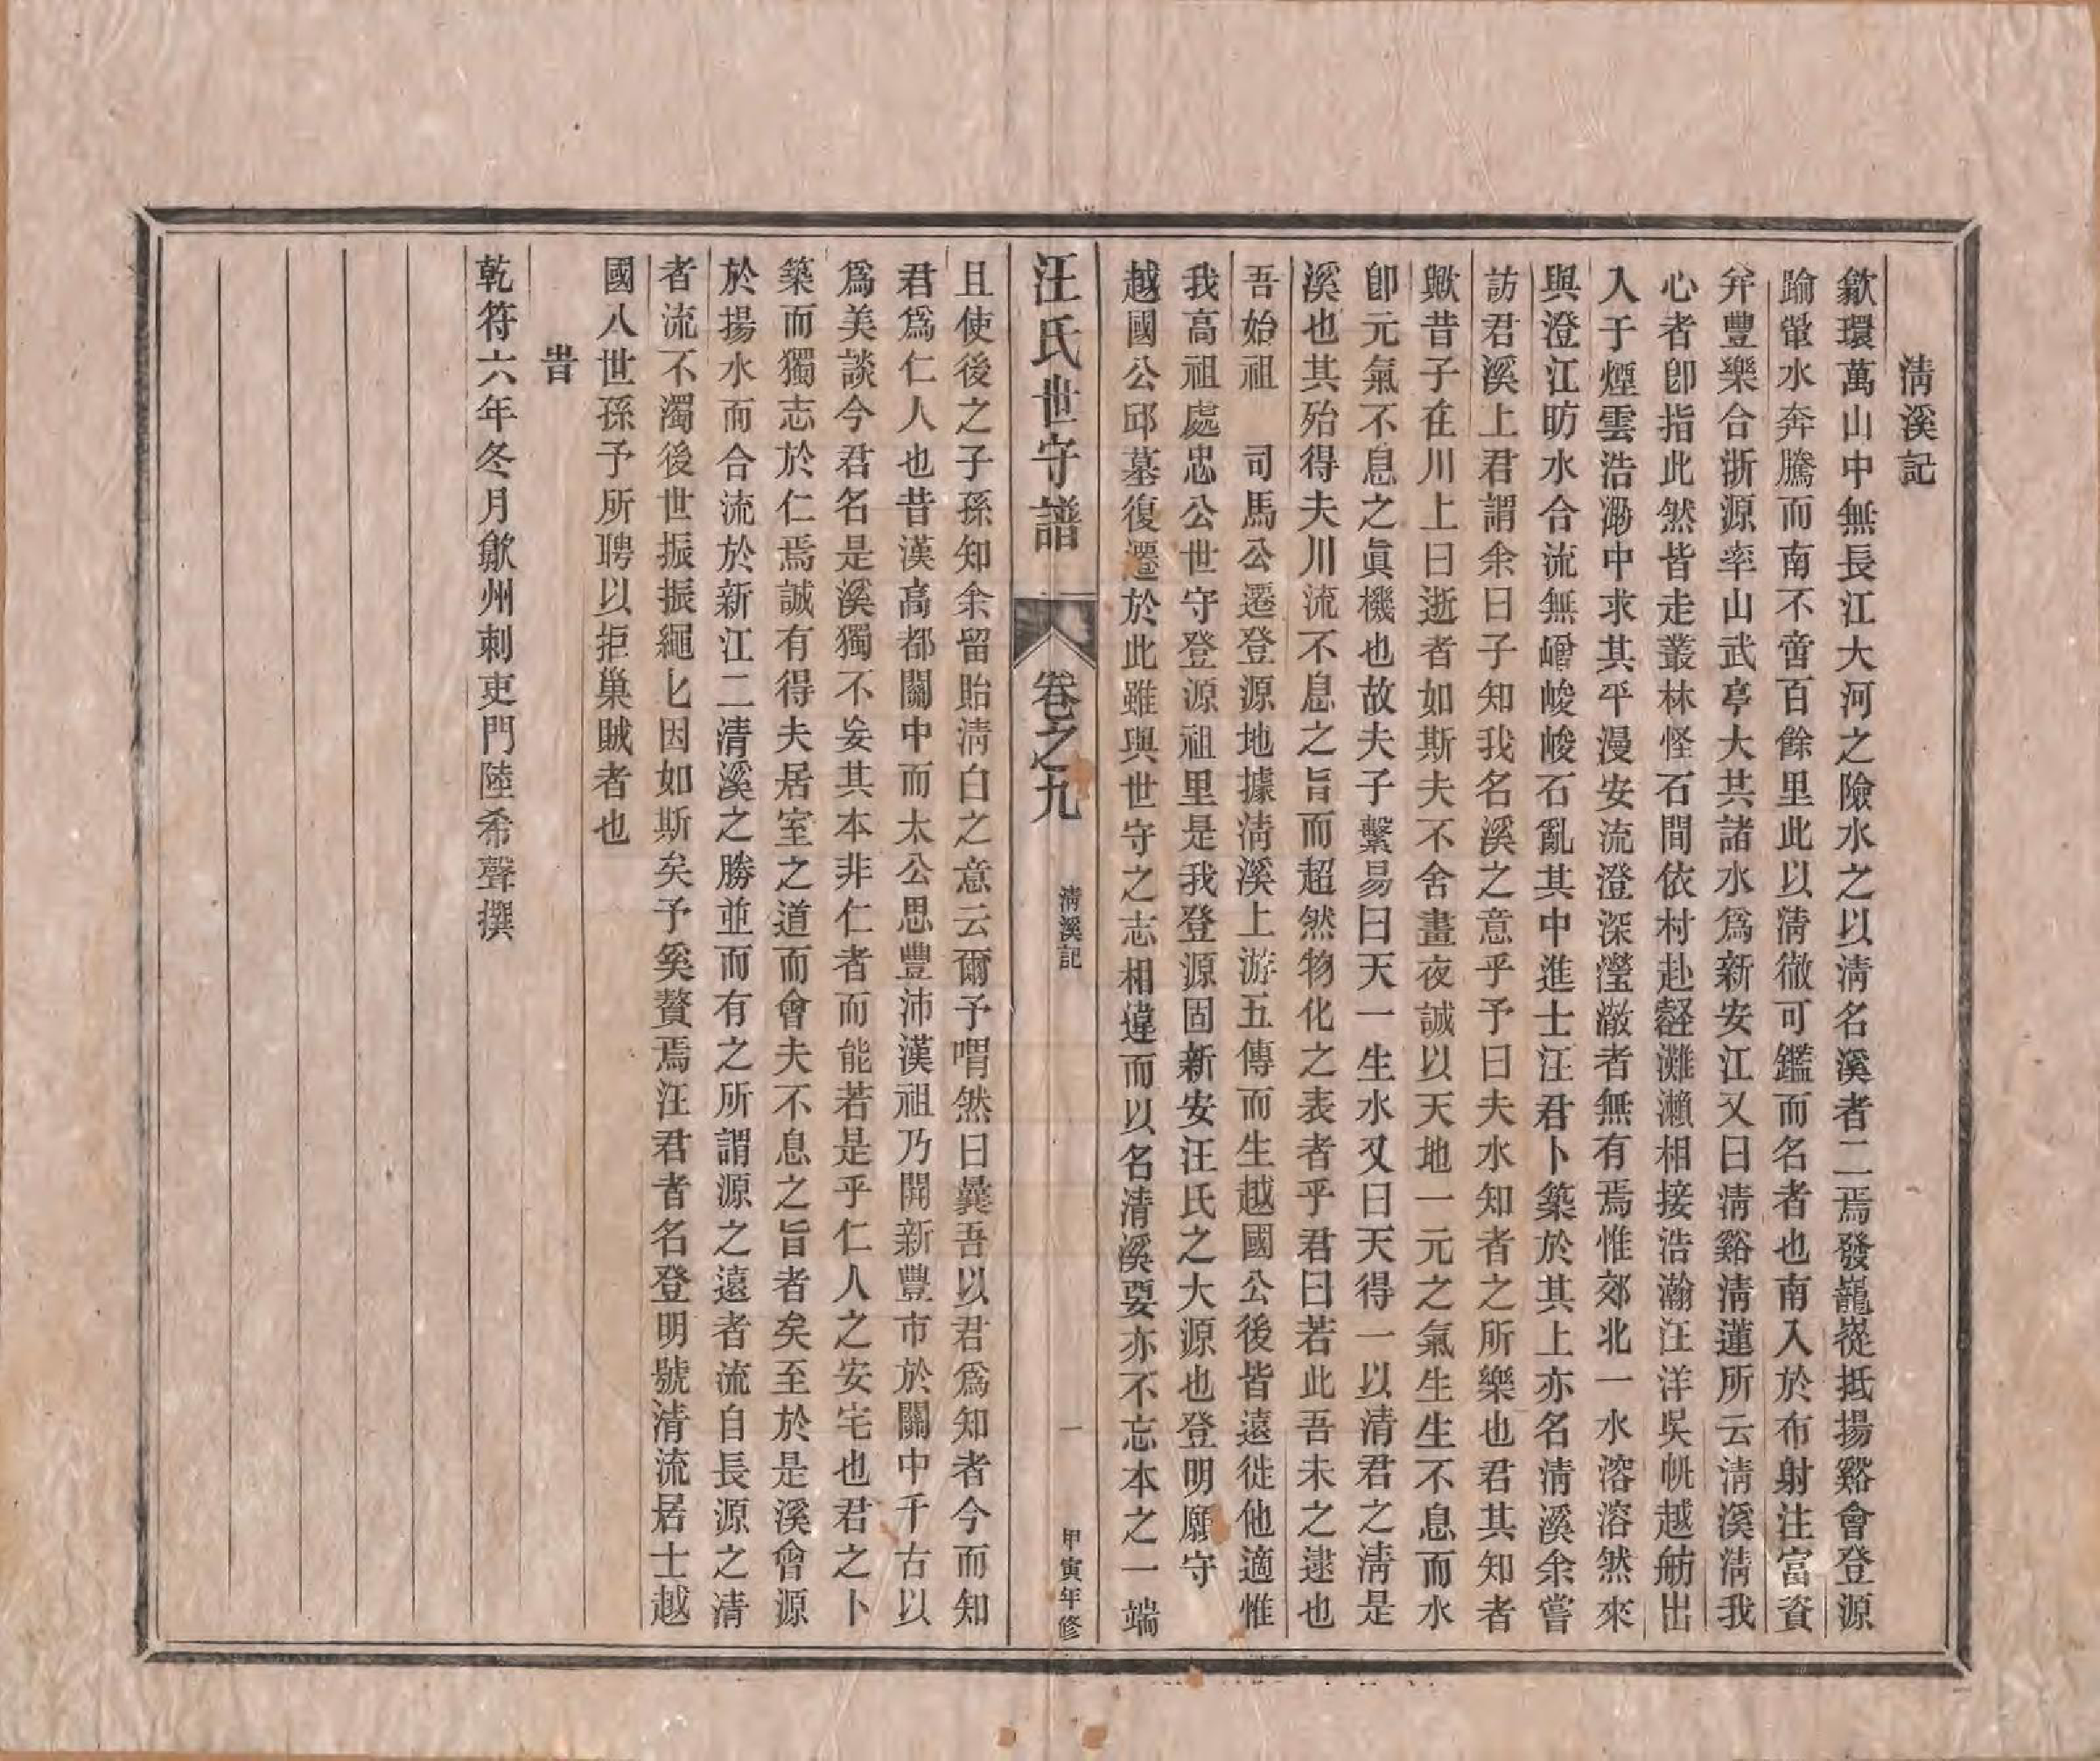 淸溪記
歙環萬山中無長江大河之險水之以淸名溪者二焉發巃嵸抵揚谿會登源
踰犖水奔騰而南不啻百餘里此以淸徹可鑑而名者也南入於布射注富資
弁豐樂合浙源率山武亭大共諸水爲新安江又曰淸谿淸蓮所云淸溪淸我
心者卽指此然皆走叢林怪石間依村赴壑灘瀨相接浩瀚汪洋吳帆越舫出
入于煙雲浩渺中求其平漫安流澄深瀅澈者無有焉惟郊北一水溶溶然來
與澄江昉水合流無嶒峻峻石亂其中進士汪君卜築於其上亦名淸溪余嘗
訪君溪上君謂余曰子知我名溪之意乎予曰夫水知者之所樂也君其知者
歟昔子在川上曰逝者如斯夫不舍晝夜誠以天地一元之氣生生不息而水
卽元氣不息之眞機也故夫子繫易曰天一生水又曰天得一以清君之淸是
溪也其殆得夫川流不息之旨而超然物化之表者乎君曰若此吾未之逮也
吾始祖　司馬公遷登源地據淸溪上游五傳而生越國公後皆遠徙他適惟
我高祖處忠公世守登源祖里是我登源固新安汪氏之大源也登明願守
越國公邱墓復遷於此雖與世守之志相違而以名清溪要亦不忘本之一端
汪氏世守譜　卷之九　淸溪記　一　甲寅年修
且使後之子孫知余留貽淸白之意云爾予喟然曰曩吾以君爲知者今而知
君爲仁人也昔漢高都關中而太公思豐沛漢祖乃開新豐市於關中千古以
爲美談今君名是溪獨不妄其本非仁者而能若是乎仁人之安宅也君之卜
築而獨志於仁焉誠有得夫居室之道而會夫不息之旨者矣至於是溪會源
於揚水而合流於新江二清溪之勝並而有之所謂源之遠者流自長源之清
者流不濁後世振振繩匕因如斯矣予奚贅焉汪君者名登明號清流居士越
國八世孫予所聘以拒巢賊者也
旹
乾符六年冬月歙州刺吏門陸希聲撰